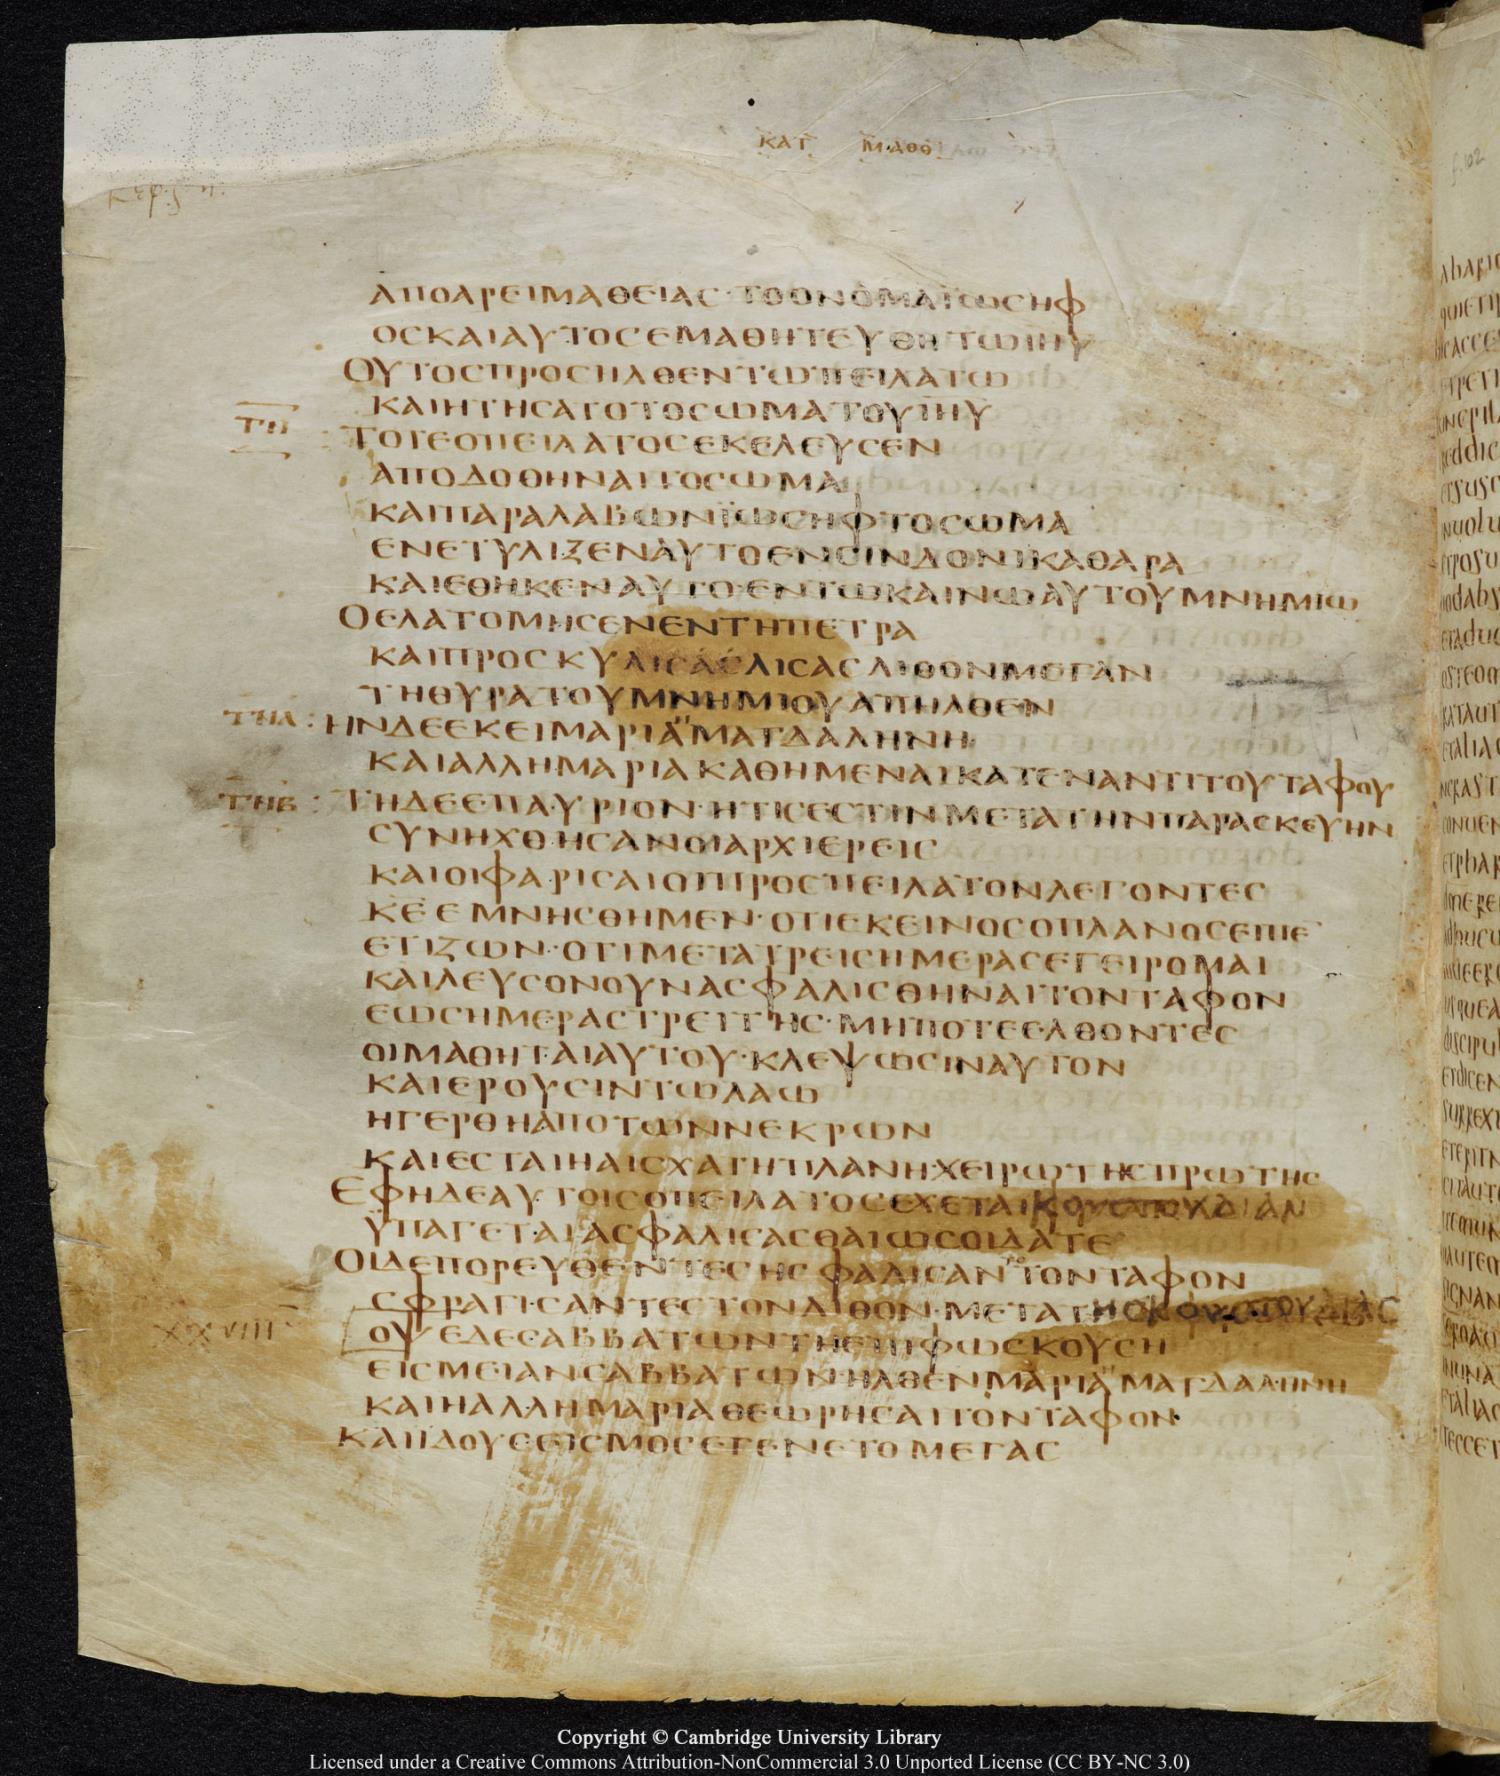 ΚΑΤ ΜΑΘΘ
ΑΠΟΑΡΕΙΜΑΘΕΙΑΣ·ΤΟΟΝΟΜΑΪΩΣΗΦ
ΟΣΚΑΙΑΥΤΟΣΕΜΑΘΗΤΕΥΘΗΤΩΙΗΥ
ΟΥΤΟΣΠΡΟΣΗΛΘΕΝΤΩΠΕΙΛΑΤΩ
ΚΑΙΗΤΗΣΑΤΟΤΟΣΩΜΑΤΟΥΙΗΥ
ΤΟΤΕΟΠΕΙΛΑΤΟΣΕΚΕΛΕΥΣΕΝ
ΑΠΟΔΟΘΗΝΑΙΤΟΣΩΜΑ
ΚΑΙΠΑΡΑΛΑΒΩΝΪΩΣΗΦΤΟΣΩΜΑ
ΕΝΕΤΥΛΙΖΕΝΑΥΤΟΕΝΣΙΝΔΟΝΙΚΑΘΑΡΑ
ΚΑΙΕΘΗΚΕΝΑΥΤΟ·ΕΝΤΩΚΑΙΝΩΑΥΤΟΥΜΝΗΜΙΩ
ΟΕΛΑΤΟΜΗΣΕΝΕΝΤΗΠΕΤΡΑ
ΚΑΙΠΡΟΣΚΥΛΙΣΑΣΛΙΘΟΝΜΕΓΑΝ
ΤΗΘΥΡΑΤΟΥΜΝΗΜΙΟΥΑΠΗΛΘΕΝ
ΤΗΑ : ΗΝΔΕΕΚΕΙΜΑΡΙΑΗΜΑΓΔΑΛΗΝΗ
ΚΑΙΑΛΛΗΜΑΡΙΑΚΑΘΗΜΕΝΑΙΚΑΤΕΝΑΝΤΙΤΟΥΤΑΦΟΥ
ΤΗΒ : ΤΗΔΕΕΠΑΥΡΙΟΝ·ΗΤΙΣΕΣΤΙΝΜΕΤΑΤΗΝΠΑΡΑΣΚΕΥΗΝ
ΣΥΝΗΧΘΗΣΑΝΟΙΑΡΧΙΕΡΕΙΣ
ΚΑΙΟΙΦΑΡΙΣΑΙΟΙΠΡΟΣΠΕΙΛΑΤΟΝΛΕΓΟΝΤΕΣ
ΚΕΕΜΝΗΣΘΗΜΕΝ·ΟΤΙΕΚΕΙΝΟΣΟΠΛΑΝΟΣΕΙΠΕ
ΕΤΙΖΩΝ·ΟΤΙΜΕΤΑΤΡΕΙΣΗΜΕΡΑΣΕΓΕΙΡΟΜΑΙ
ΚΑΙΛΕΥΣΟΝΟΥΝΑΣΦΑΛΙΣΘΗΝΑΙΤΟΝΤΑΦΟΝ
ΕΩΣΗΜΕΡΑΣΤΡΕΙΤΗΣ·ΜΗΠΟΤΕΕΛΘΟΝΤΕΣ
ΟΙΜΑΘΗΤΑΙΑΥΤΟΥ·ΚΛΕΨΩΣΙΝΑΥΤΟΝ
ΚΑΙΕΡΟΥΣΙΝΤΩΛΑΩ
ΗΓΕΡΘΗΑΠΟΤΩΝΝΕΚΡΩΝ
ΚΑΙΕΣΤΑΙΗΑΙΣΧΑΤΗΠΛΑΝΗ·ΧΕΙΡΩΤΗΣΠΡΩΤΗΣ
ΕΦΗΔΕΑΥΤΟΙΣΟΠΕΙΛΑΤΟΣΕΧΕΤΑΙΚΟΥΣΤΟΥΔΙΑΝ
ΥΠΑΓΕΤΑΙΑΣΦΑΛΙΣΑΣΘΑΙΩΣΟΙΔΑΤΕ
ΟΙΔΕΠΟΡΕΥΘΕΝΤΕΣΗΣΦΑΛΙΣΑΝΤΟΝΤΑΦΟΝ
ΣΦΡΑΓΙΣΑΝΤΕΣΤΟΝΛΙΘΟΝ·ΜΕΤΑΤΗΣΚΟΥΣΤΟΥΔΙΑΣ
XXVIII ΟΨΕΔΕΣΑΒΒΑΤΩΝΤΗΕΠΙΦΩΣΚΟΥΣΗ
ΕΙΣΜΕΙΑΝΣΑΒΒΑΤΩΝ·ΗΛΘΕΝΜΑΡΙΑΗΜΑΓΔΑΛΗΝΗ
ΚΑΙΗΑΛΛΗΜΑΡΙΑΘΕΩΡΗΣΑΙΤΟΝΤΑΦΟΝ·
ΚΑΙΪΔΟΥΣΕΙΣΜΟΣΕΓΕΝΕΤΟΜΕΓΑΣ
f. 102
Copyright © Cambridge University Library
Licensed under a Creative Commons Attribution-NonCommercial 3.0 Unported License (CC BY-NC 3.0)